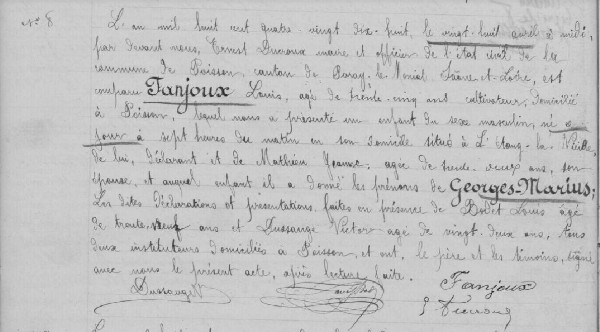 N° 8
L'an mil huit cent quatre-vingt dix-sept, le vingt-huit avril à midi,
par devant nous, Ernest Ducroux maire et officier de l'état civil de la
commune de Poisson, canton de Paray-le-Monial, Saône-et-Loire, est
comparu Fanjoux Louis, âgé de trente-cinq ans cultivateur, domicilié
à Poisson, lequel nous a présenté un enfant du sexe masculin, né ce
jour à sept heures du matin en son domicile situé à L'Etang-la-Vieille
de lui, déclarant et de Mathieu Jeanne, âgée de trente-deux ans, son
épouse, et auquel enfant il a donné les prénoms de Georges-Marius;
Les dites déclarations et présentations faites en présence de Bodet Louis âgé
de trente-neuf ans et Dussauge Victor âgé de vingt-deux ans, tous
deux instituteurs domiciliés à Poisson, et ont, le père et les témoins, signé
avec nous le présent acte, après lecture faite.
Dussauge Fanjoux
E Ducroux